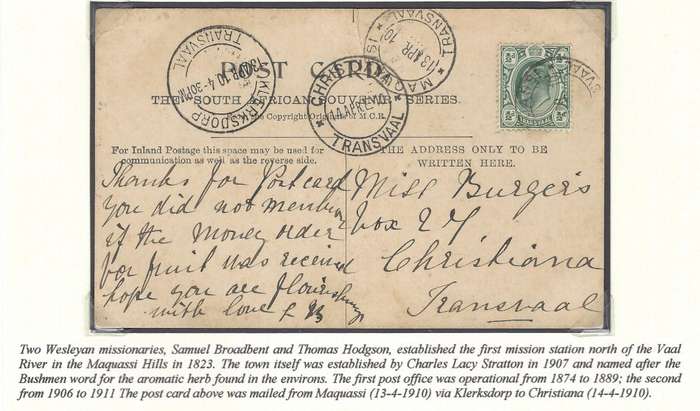 MAQUASSI
13 APR 10
TRANSVAAL
KLERKSDORP
APR 10 4-30PM
TRANSVAAL
POST CARD
CHRISTIANA
14 APR 10
TRANSVAAL
THE SOUTH AFRICAN SOUVENIR SERIES.
The Copyright Original of M.C.R.
½d ½d
TRANSVAAL
For Inland Postage this space may be used for
communication as well as the reverse side.
THE ADDRESS ONLY TO BE
WRITTEN HERE.
Thanks for Postcard
you did not mention
if the money order
for fruit was received
hope you are flourishing
with love
Miss Burgers
box 27
Christiana
Transvaal
Two Wesleyan missionaries, Samuel Broadbent and Thomas Hodgson, established the first mission station north of the Vaal
River in the Maquassi Hills in 1823. The town itself was established by Charles Lacy Stratton in 1907 and named after the
Bushmen word for the aromatic herb found in the environs. The first post office was operational from 1874 to 1889; the second
from 1906 to 1911 The post card above was mailed from Maquassi (13-4-1910) via Klerksdorp to Christiana (14-4-1910).